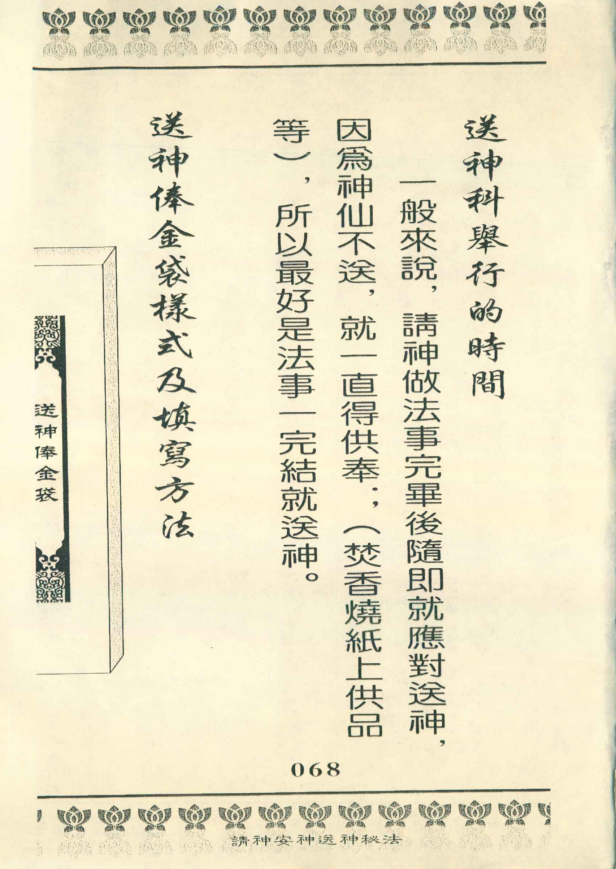 送神科舉行的時間
一般來說，請神做法事完畢後隨即就應對送神，
因爲神仙不送，就一直得供奉；（焚香燒紙上供品
等），所以最好是法事一完結就送神。
送神俸金袋樣式及填寫方法
送神俸金袋
068
請神安神送神秘法